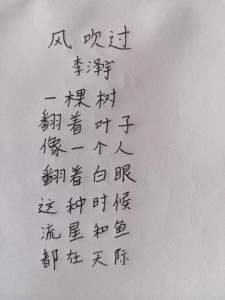 风吹过
李泽宇
一棵树
翻着叶子
像一个人
翻着白眼
这种时候
流星和鱼
都在天际